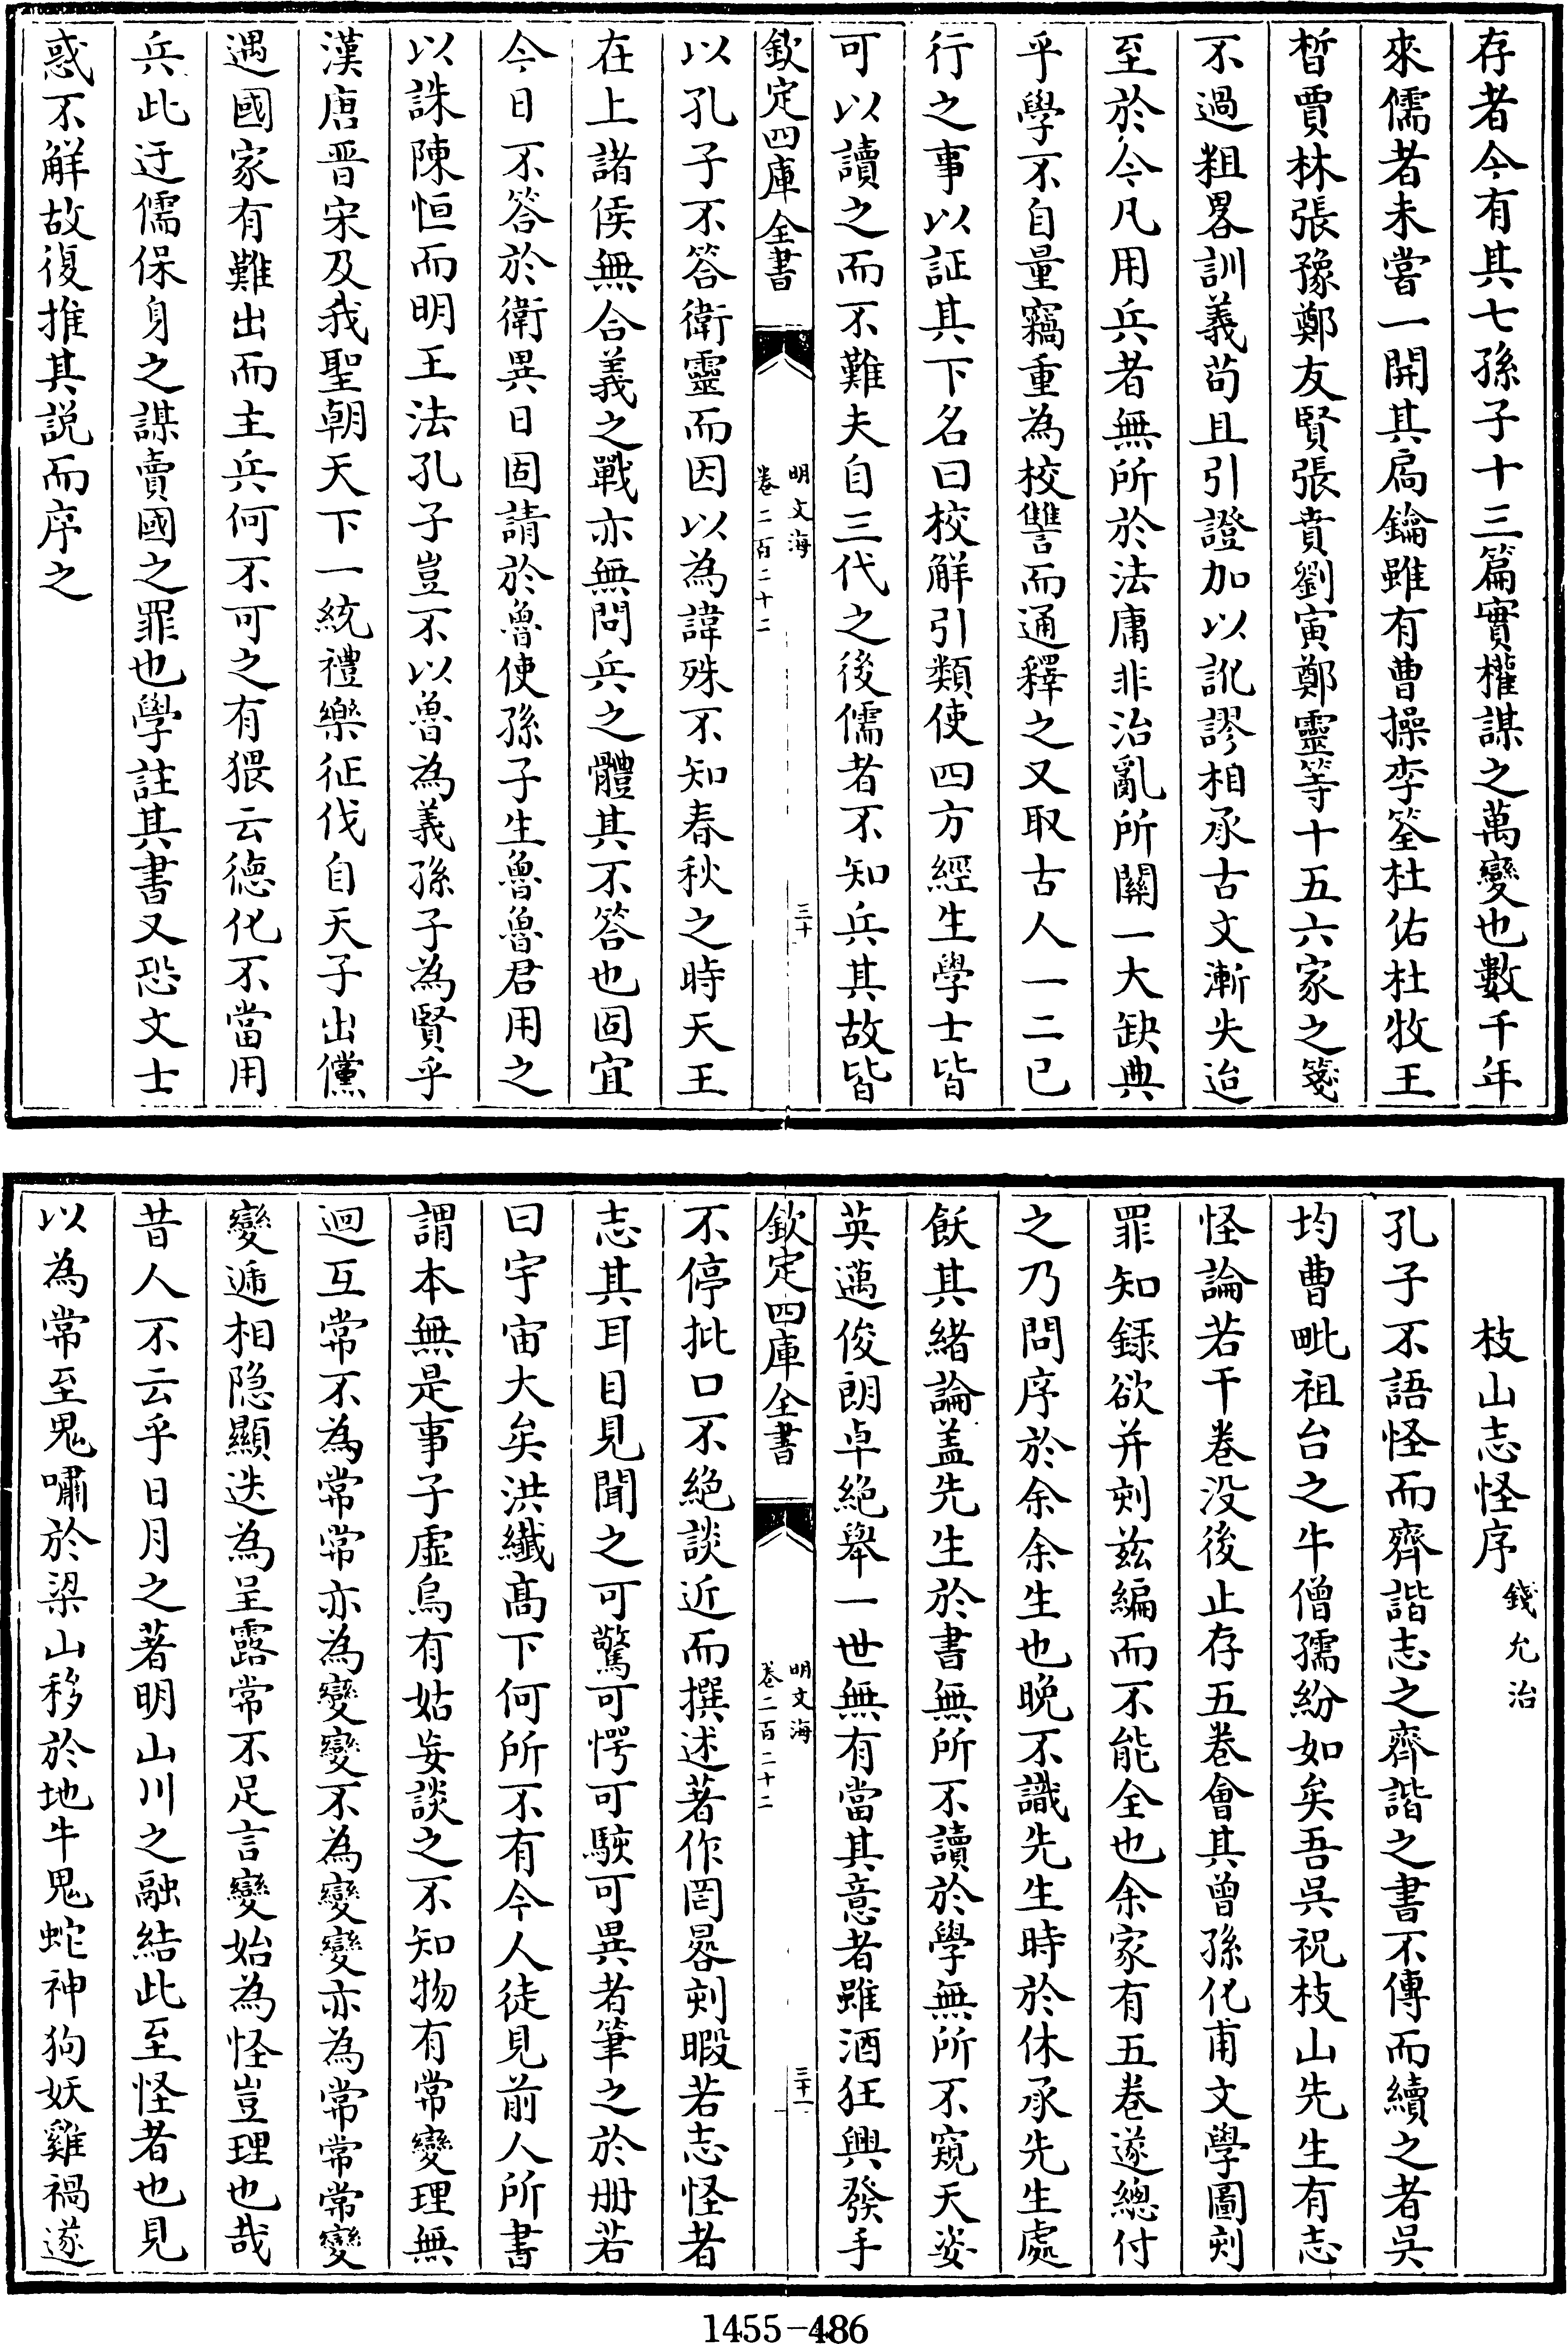 存者今有其七孫子十三篇實權謀之萬變也數千年
來儒者未嘗一開其扃鑰雖有曹操李筌杜佑杜牧王
晳賈林張豫鄭友賢張賁劉寅鄭靈等十五六家之箋
不過粗畧訓義茍且引證加以訛謬相承古文漸失迨
至於今凡用兵者無所於法庸非治亂所關一大缺典
乎學不自量竊重為校讐而通釋之又取古人一二已
行之事以証其下名曰校解引類使四方經生學士皆
可以讀之而不難夫自三代之後儒者不知兵其故皆
欽定四庫全書
明文海
卷二百二十二
三十
以孔子不答衛靈而因以為諱殊不知春秋之時天王
在上諸侯無合義之戰亦無問兵之體其不答也固宜
今日不答於衛異日固請於魯使孫子生魯魯君用之
以誅陳恒而明王法孔子豈不以魯為義孫子為賢乎
漢唐晉宋及我聖朝天下一統禮樂征伐自天子出儻
遇國家有難出而主兵何不可之有猥云德化不當用
兵此迂儒保身之謀賣國之罪也學註其書又恐文士
惑不解故復推其説而序之
枝山志怪序 錢允治
孔子不語怪而齊諧志之齊諧之書不傳而續之者吳
均曹毗祖台之牛僧孺紛如矣吾吳祝枝山先生有志
怪論若干卷没後止存五卷會其曾孫化甫文學圖刻
罪知録欲并刻兹編而不能全也余家有五卷遂總付
之乃問序於余余生也晚不識先生時於休承先生處
飫其緒論盖先生於書無所不讀於學無所不窺天姿
英邁俊朗卓絶舉一世無有當其意者雖酒狂興發手
欽定四庫全書
明文海
卷二百二十二
三十一
不停批口不絶談近而撰述著作罔晷刻暇若志怪者
志其耳目見聞之可驚可愕可駭可異者筆之於册若
曰宇宙大矣洪纖髙下何所不有今人徒見前人所書
謂本無是事子虛烏有姑妄談之不知物有常變理無
迴互常不為常常亦為變變不為變變亦為常常常變
變遞相隐顯迭為呈露常不足言變始為怪豈理也哉
昔人不云乎日月之著明山川之融結此至怪者也見
以為常至鬼嘯於梁山移於地牛鬼蛇神狗妖雞禍遂
1455-486